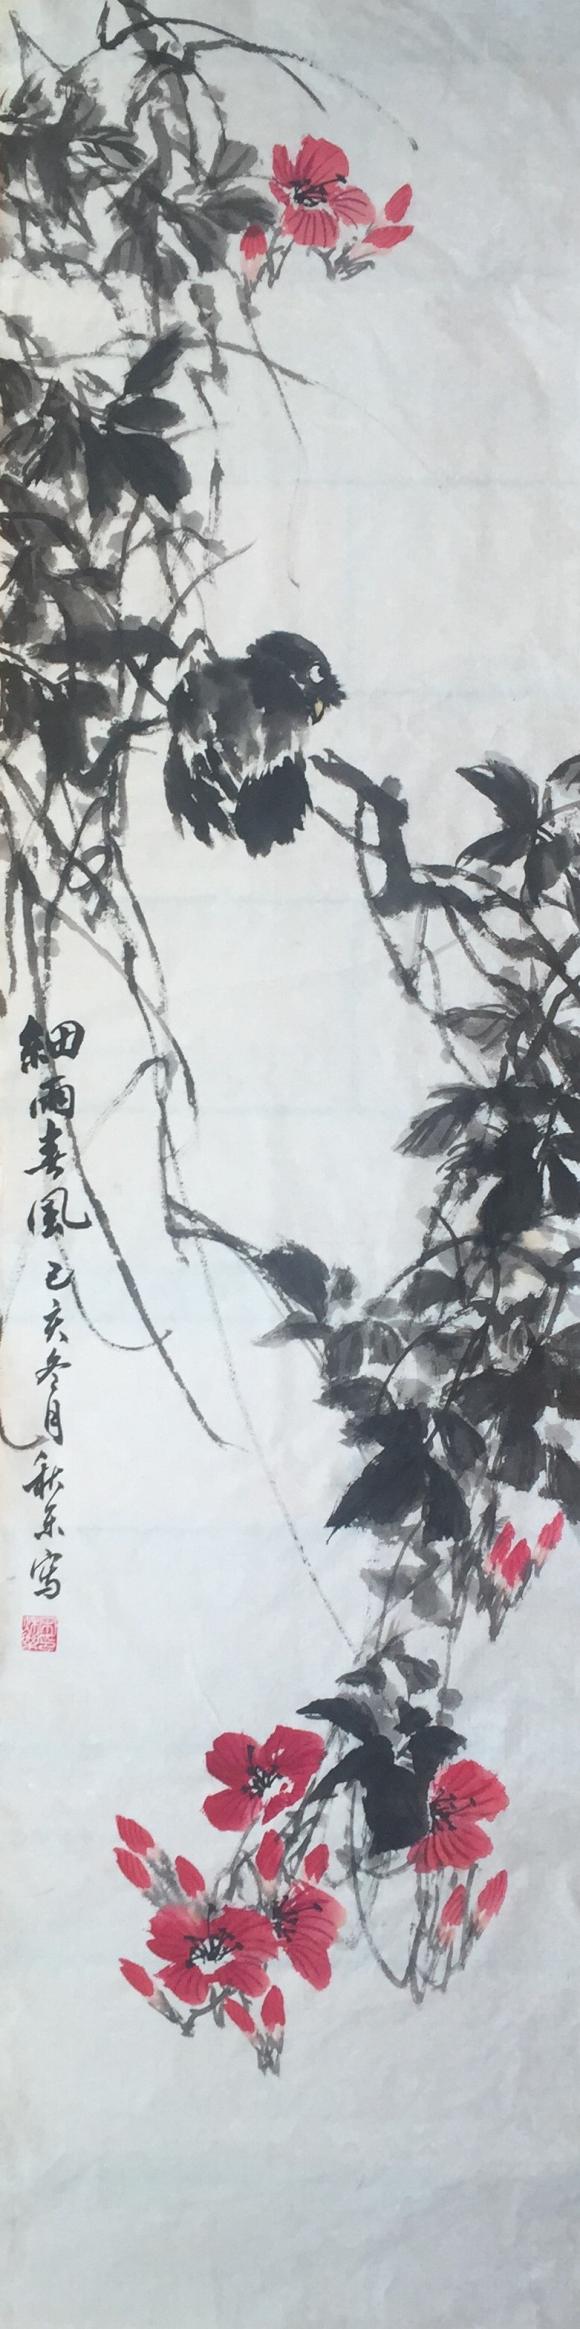 細雨春風己亥冬月秋東寫